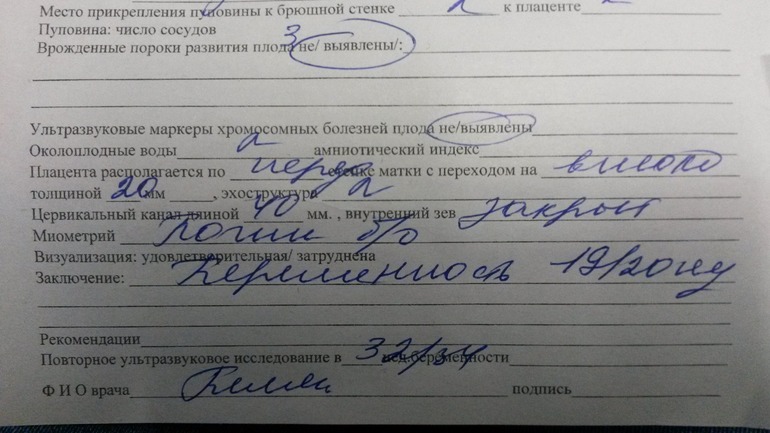 Место прикрепления пуповины к брюшной стенке 2 к плаценте
Пуповина: число сосудов 3
Врожденные пороки развития плода не/ выявлены/:
Ультразвуковые маркеры хромосомных болезней плода не/выявлены
Околоплодные воды амниотический индекс
Плацента располагается по перед стенке матки с переходом на высоко
толщиной 20 мм , эхоструктура 2
Цервикальный канал длиной 40 мм. , внутренний зев закрыт
Миометрий б/о
Визуализация: удовлетворительная/ затруднена
Заключение: Беременность 19/20 нед
Рекомендации
Повторное ультразвуковое исследование в 32/34 нед.беременности
Ф И О врача подпись